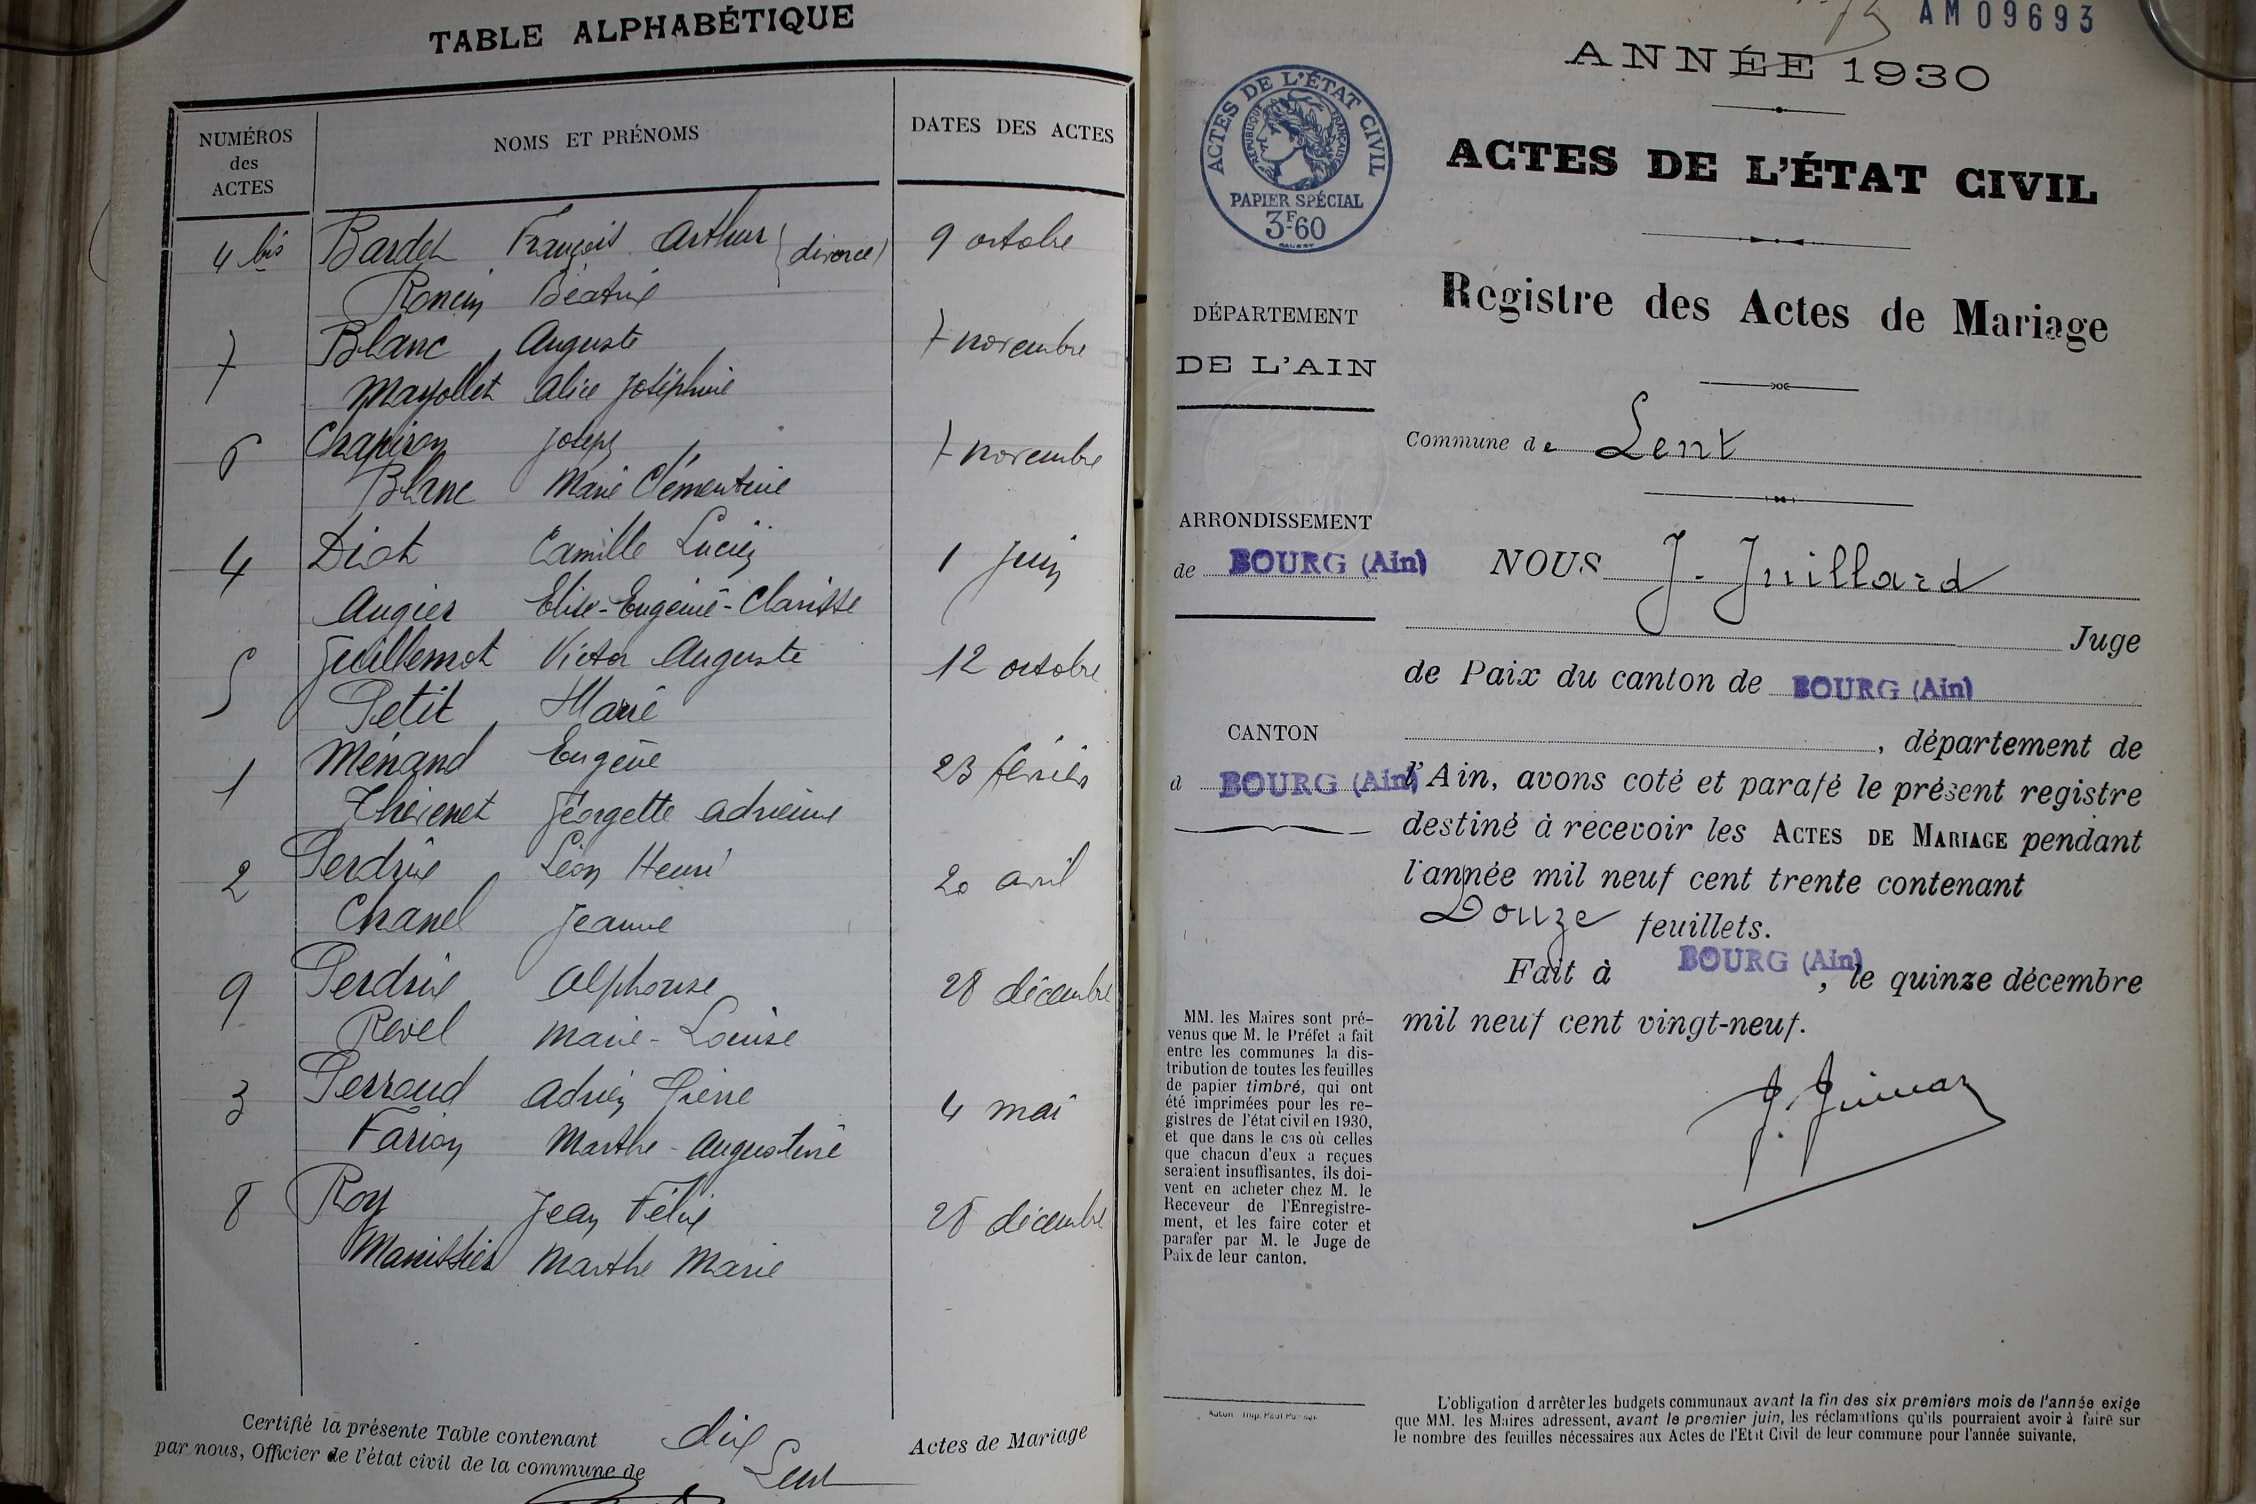 TABLE ALPHABÉTIQUE
NUMÉROS des ACTES
NOMS ET PRÉNOMS
DATES DES ACTES
4 bis Bardet François Arthur (divorce) 9 octobre
Roncin Béatrix
7 Blanc Auguste 7 novembre
Mayollet Alice Joséphine
6 Chapiron Joseph 7 novembre
Blanc Marie Clémentine
4 Diot Camille Lucien 1 Juin
Augier Elise-Eugénie-Clarisse
5 Guillemot Victor Auguste 12 octobre
Petit Marie
1 Ménand Eugène 23 février
Thévenet Georgette Adrienne
2 Perdrix Léon Henri 20 avril
Chanel Jeanne
9 Perdrix Alphonse 28 décembre
Revel Marie-Louise
3 Perraud Adrien Pierre 4 mai
Farion Marthe-Augustine
8 Roy Jean Félix 28 décembre
Manissier Marthe Marie
Certifié la présente Table contenant dix Actes de Mariage
par nous, Officier de l'état civil de la commune de Lent
AM09693
ANNÉE 1930
ACTES DE L'ÉTAT CIVIL
RÉPUBLIQUE FRANÇAISE
PAPIER SPÉCIAL
3F60
ACTES DE L'ÉTAT CIVIL
Registre des Actes de Mariage
DÉPARTEMENT
DE L'AIN
Commune de Lent
ARRONDISSEMENT
de BOURG (Ain)
CANTON
d BOURG (Ain)
NOUS J. Juillard
Juge
de Paix du canton de BOURG (Ain)
, département de
l'Ain, avons coté et parafé le présent registre
destiné à recevoir les ACTES DE MARIAGE pendant
l'année mil neuf cent trente contenant
Douze feuillets.
Fait à BOURG (Ain), le quinze décembre
mil neuf cent vingt-neuf.
MM. les Maires sont pré-
venus que M. le Préfet a fait
entre les communes la dis-
tribution de toutes les feuilles
de papier timbré, qui ont
été imprimées pour les re-
gistres de l'état civil en 1930,
et que dans le cas où celles
que chacun d'eux a reçues
seraient insuffisantes, ils doi-
vent en acheter chez M. le
Receveur de l'Enregistre-
ment, et les faire coter et
parafer par M. le Juge de
Paix de leur canton.
L'obligation d'arrêter les budgets communaux avant la fin des six premiers mois de l'année exige
que MM. les Maires adressent, avant le premier juin, les réclamations qu'ils pourraient avoir à faire sur
le nombre des feuilles nécessaires aux Actes de l'Etat Civil de leur commune pour l'année suivante.